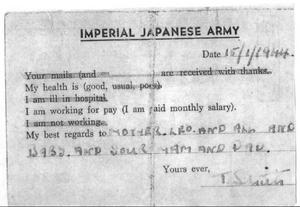 IMPERIAL JAPANESE ARMY
Date 15/1/1944.
Your mails (and ) are received with thanks.
My health is (good, usual, poor).
I am ill in hospital.
I am working for pay (I am paid monthly salary).
I am not working.
My best regards to MOTHER. LEO. AND ALL AND
AND YOUR MAM AND DAD.
Yours ever,